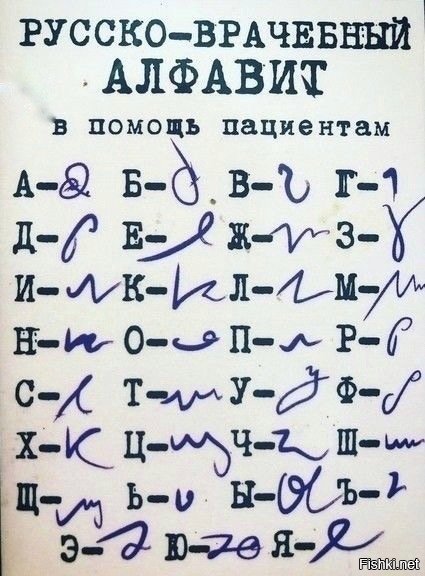 РУССКО-ВРАЧЕБНЫЙ
АЛФАВИТ
в помощь пациентам
А- Б- В- Г-
Д- Е- Ж- З-
И- К- Л- М-
Н- О- П- Р-
С- Т- У- Ф-
Х- Ц- Ч- Ш-
Щ- Ь- Ы- Ъ-
Э- Ю- Я-
Fishki.net